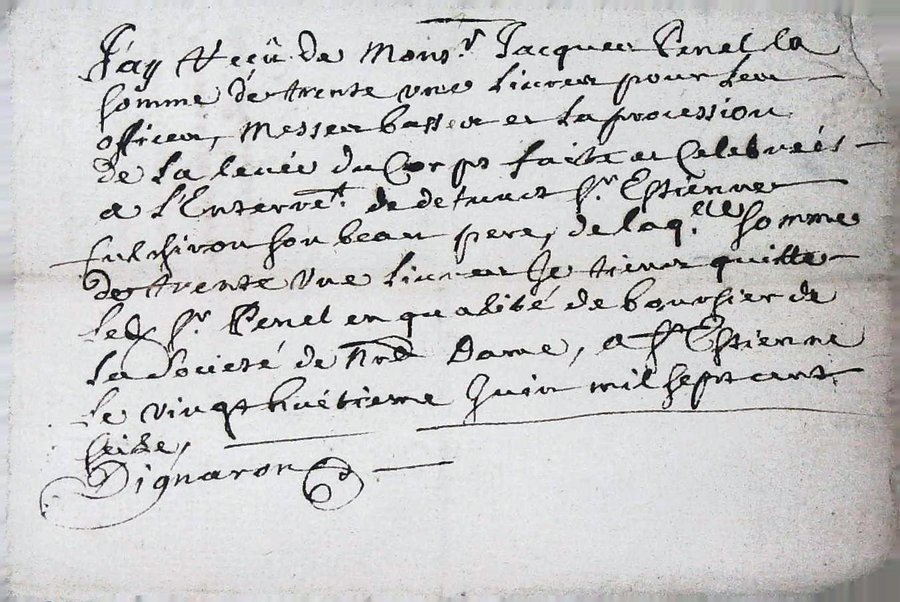 J'ay Receü de Mons.r Jacques Penel la
somme de trente vne Liures pour Les
offices, Messes basses et La procession
de La leuée du Corps faitte et Celebreés
a L'Enterre.t de defunct S.r Estienne
Fulchiron son beau pere, de laq.elle somme
de trente vne Liures Je tiens quitte
Led. S.r Penel en qualité de boursier de
La Societé de Nre Dame, a S.t Estienne
Le vingt huétieme Juin mil sept cent
seize,
Dignaron